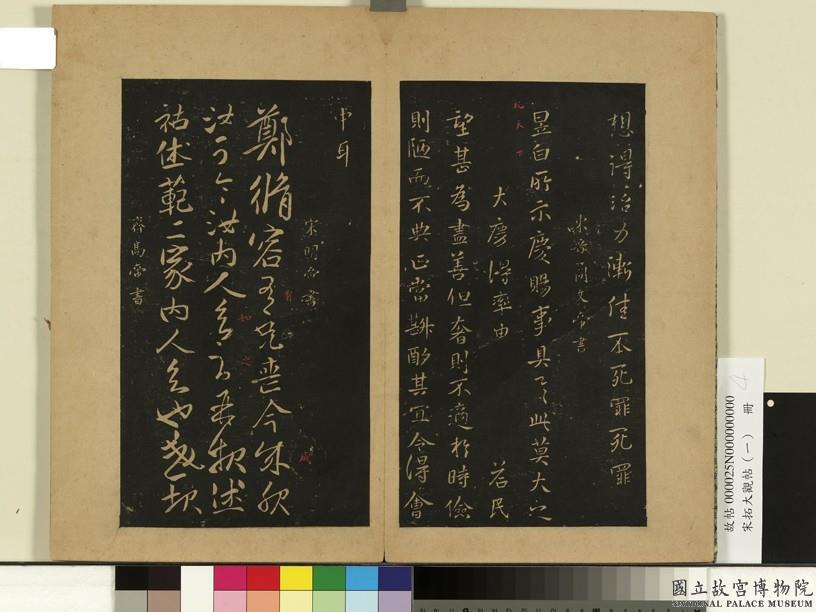 想得治力漸佳不死罪死罪
簡文帝書
昱白所示慶賜事具了此莫大之
大慶得率由
若民
望甚為盡善但奢則不適於時儉
則陋而不典正當斟酌其宜令得會
中耳
宋明帝書
鄭脩容兄喪今成服
汝可令汝内人
祐述範二家内人
齊高帝書
故帖000025N000000000
宋拓大觀帖(一) 冊
4
國立故宮博物院
NATIONAL PALACE MUSEUM